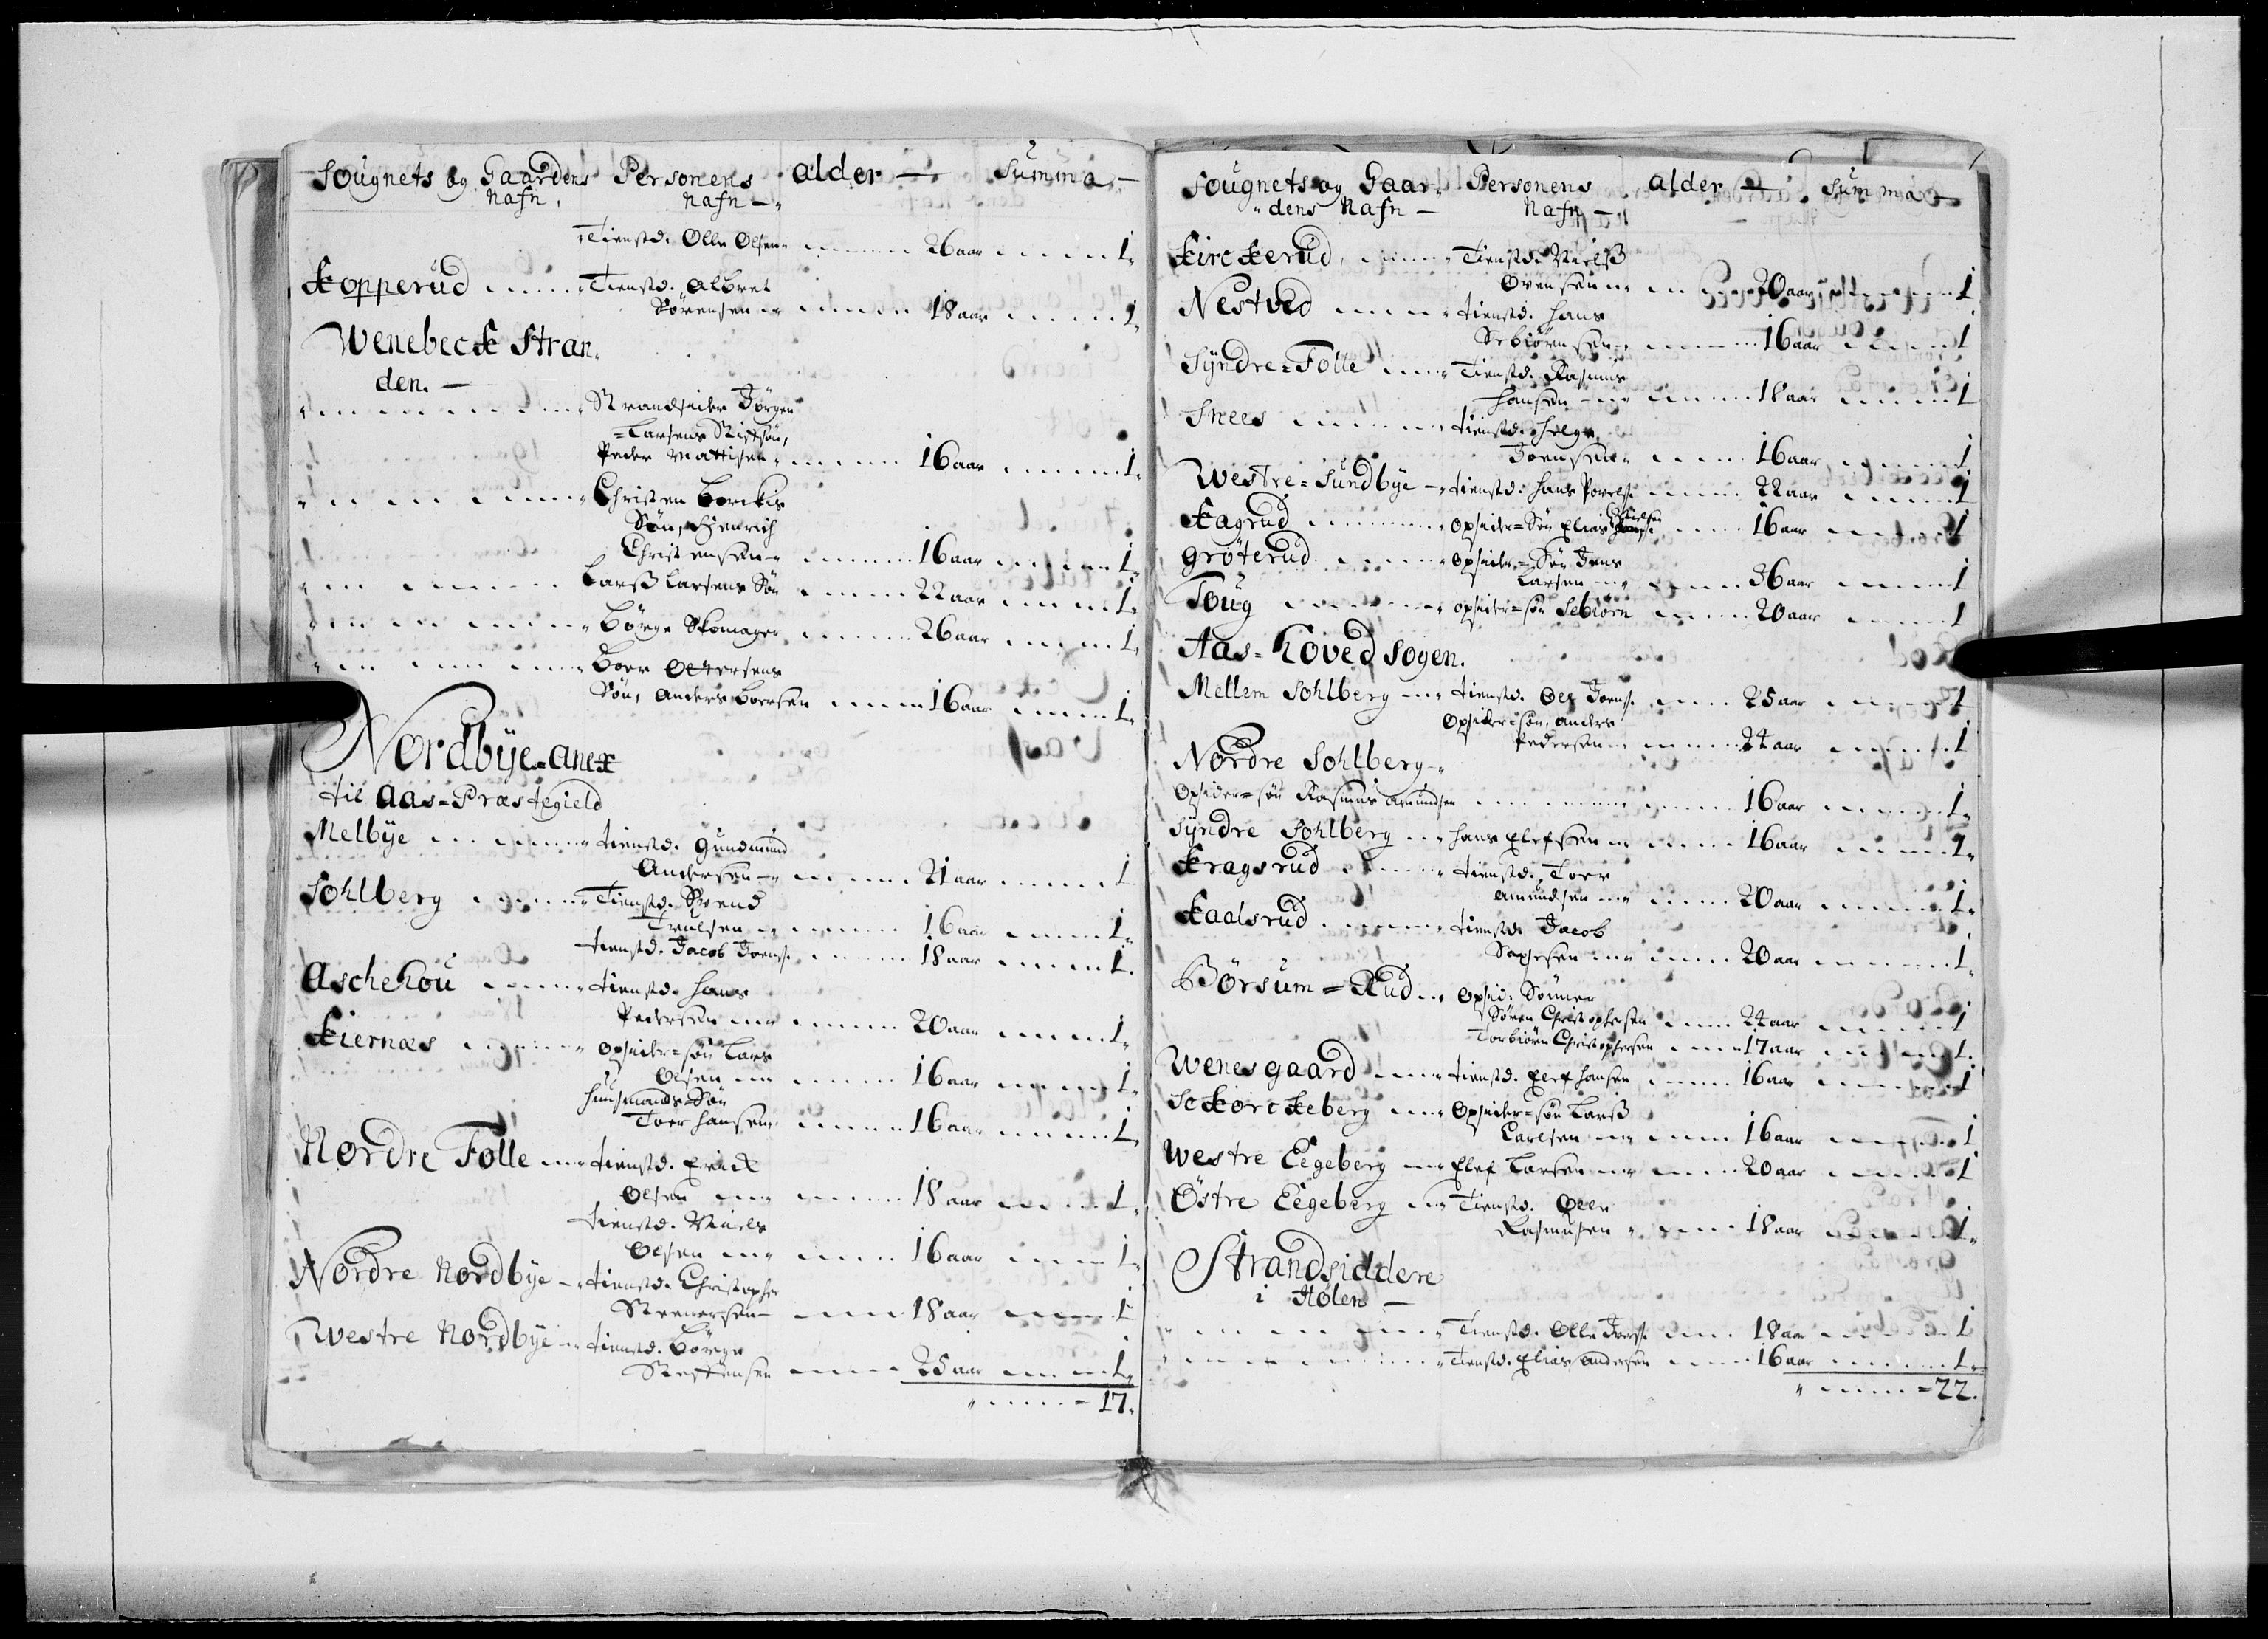 Sougnets og Gaardens Personens alder — Summa —
Nafn, Nafn —
Tienstd. Olle Olsen 26 aar 1
Kopperud Tienstd. Albret
Sörensen 18 aar 1
Wenebeck Stran
den. —
Strandsider Jörgen
Larsens Stifsön,
Peder Mattisen 16 aar 1
Christen Borckis
Sön, Hendrich
Christensen 16 aar 1
Larss Larsens Sön 22 aar 1
Börge Skomager 26 aar 1
Boer
Sön, Anders Boersen 16 aar 1
Nordbÿe-anex
til Aas-Præstegield
Melbÿe tienstd. Gundmund
Andersen 21 aar 1
Sohlberg Tienstd. Svend
Trulsen 16 aar 1
tienstd. Jacob Joens. 18 aar 1
Aschehou tienstd. Hans
Pedersen 20 aar 1
Kiernæs opsider=sön Lars
Olsen 16 aar 1
Huusmands=Sön
Toer Hansen 16 aar 1
Nordre Folle tienstd. Erick
Olsen 18 aar 1
tienstd. Niels
Olsen 16 aar 1
Nordre Nordbÿe tienstd. Christopher
Steenersen 18 aar 1
Westre Nordbÿe tienstd. Börge
Steffensen 25 aar 1
17.
Sougnets og Gaar- Personens alder — Summa —
dens Nafn — Nafn —
Kirckerud Tienstd. Nielss
Övensen 20 aar 1
Nestved tienstd. Hans
Sebiörnsen 16 aar 1
Sÿndre=Folle Tienstd. Rasmus
Hansen 18 aar 1
Snees tienstd. Helge
Joensen 16 aar 1
Westre=Sundbÿe tienstd. Hans Povels. 22 aar 1
Kagrud opsider=Sön Elias 16 aar 1
Gröterud opsider=Sön Jens
Larsen 36 aar 1
Toug opsider=sön Sebiörn 20 aar 1
Aas-Hoved Sogen.
Mellem Sohlberg tienstd. Ole Joens. 25 aar 1
opsider=sön, Anders
Pedersen 24 aar 1
Nordre Sohlberg
Opsider=sön Rasmus Amundsen 16 aar 1
Sÿndre Sohlberg Hans Elefsen 16 aar 1
Kragsrud tienstd. Toer
Amundsen 20 aar 1
Kaalsrud tienstd. Jacob
20 aar 1
Börsum=Rud Opsid. Sönner
Sören Christophersen 24 aar 1
Torbiörn Christophersen 17 aar 1
Wenesgaard tienstd. Elef Hansen 16 aar 1
Sckorckeberg Opsider=sön Larss
Carlsen 16 aar 1
Westre Eegeberg Elef Larsen 20 aar 1
Östre Eegeberg Tienstd. Olle
Rasmusen 18 aar 1
Strandsiddere
i Hölen —
Tienstd. Olle Joens. 18 aar 1
Tienstd. Elias Andersen 16 aar 1
22.